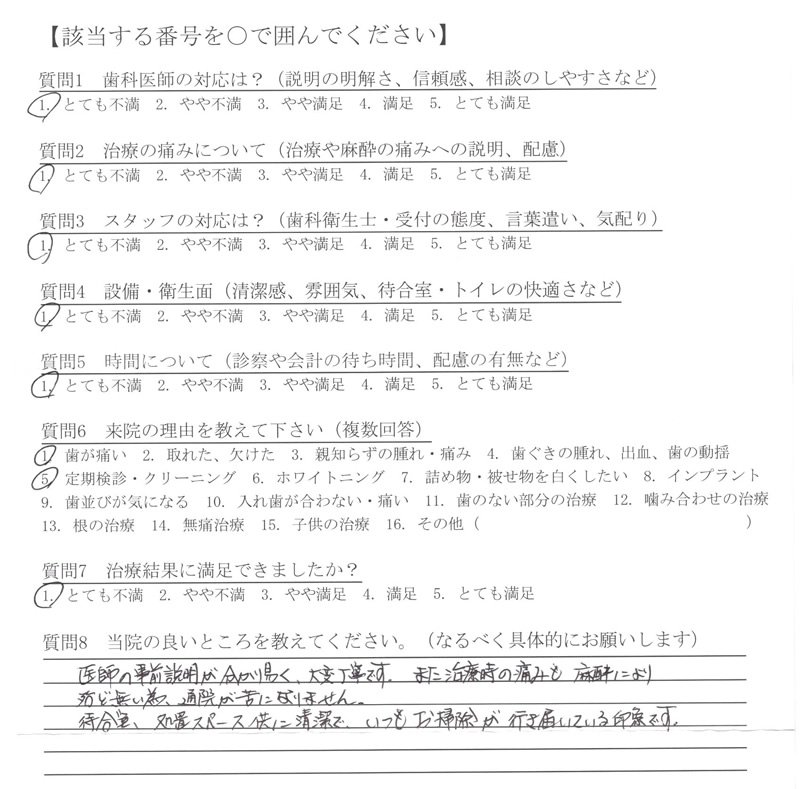 【該当する番号を○で囲んでください】
質問1　歯科医師の対応は？（説明の明解さ、信頼感、相談のしやすさなど）
1. とても不満　2. やや不満　3. やや満足　4. 満足　5. とても満足
質問2　治療の痛みについて（治療や麻酔の痛みへの説明、配慮）
1. とても不満　2. やや不満　3. やや満足　4. 満足　5. とても満足
質問3　スタッフの対応は？（歯科衛生士・受付の態度、言葉遣い、気配り）
1. とても不満　2. やや不満　3. やや満足　4. 満足　5. とても満足
質問4　設備・衛生面（清潔感、雰囲気、待合室・トイレの快適さなど）
1. とても不満　2. やや不満　3. やや満足　4. 満足　5. とても満足
質問5　時間について（診察や会計の待ち時間、配慮の有無など）
1. とても不満　2. やや不満　3. やや満足　4. 満足　5. とても満足
質問6　来院の理由を教えて下さい（複数回答）
1. 歯が痛い　2. 取れた、欠けた　3. 親知らずの腫れ・痛み　4. 歯ぐきの腫れ、出血、歯の動揺
5. 定期検診・クリーニング　6. ホワイトニング　7. 詰め物・被せ物を白くしたい　8. インプラント
9. 歯並びが気になる　10. 入れ歯が合わない・痛い　11. 歯のない部分の治療　12. 噛み合わせの治療
13. 根の治療　14. 無痛治療　15. 子供の治療　16. その他（　　　　　　　　　　）
質問7　治療結果に満足できましたか？
1. とても不満　2. やや不満　3. やや満足　4. 満足　5. とても満足
質問8　当院の良いところを教えてください。（なるべく具体的にお願いします）
医師の事前説明が分かり易く、大変丁寧です。また治療時の痛みも麻酔により
ほど無い為、通院が苦になりません。
待合室、処置スペース共に清潔で、いつもお掃除が行き届いている印象です。